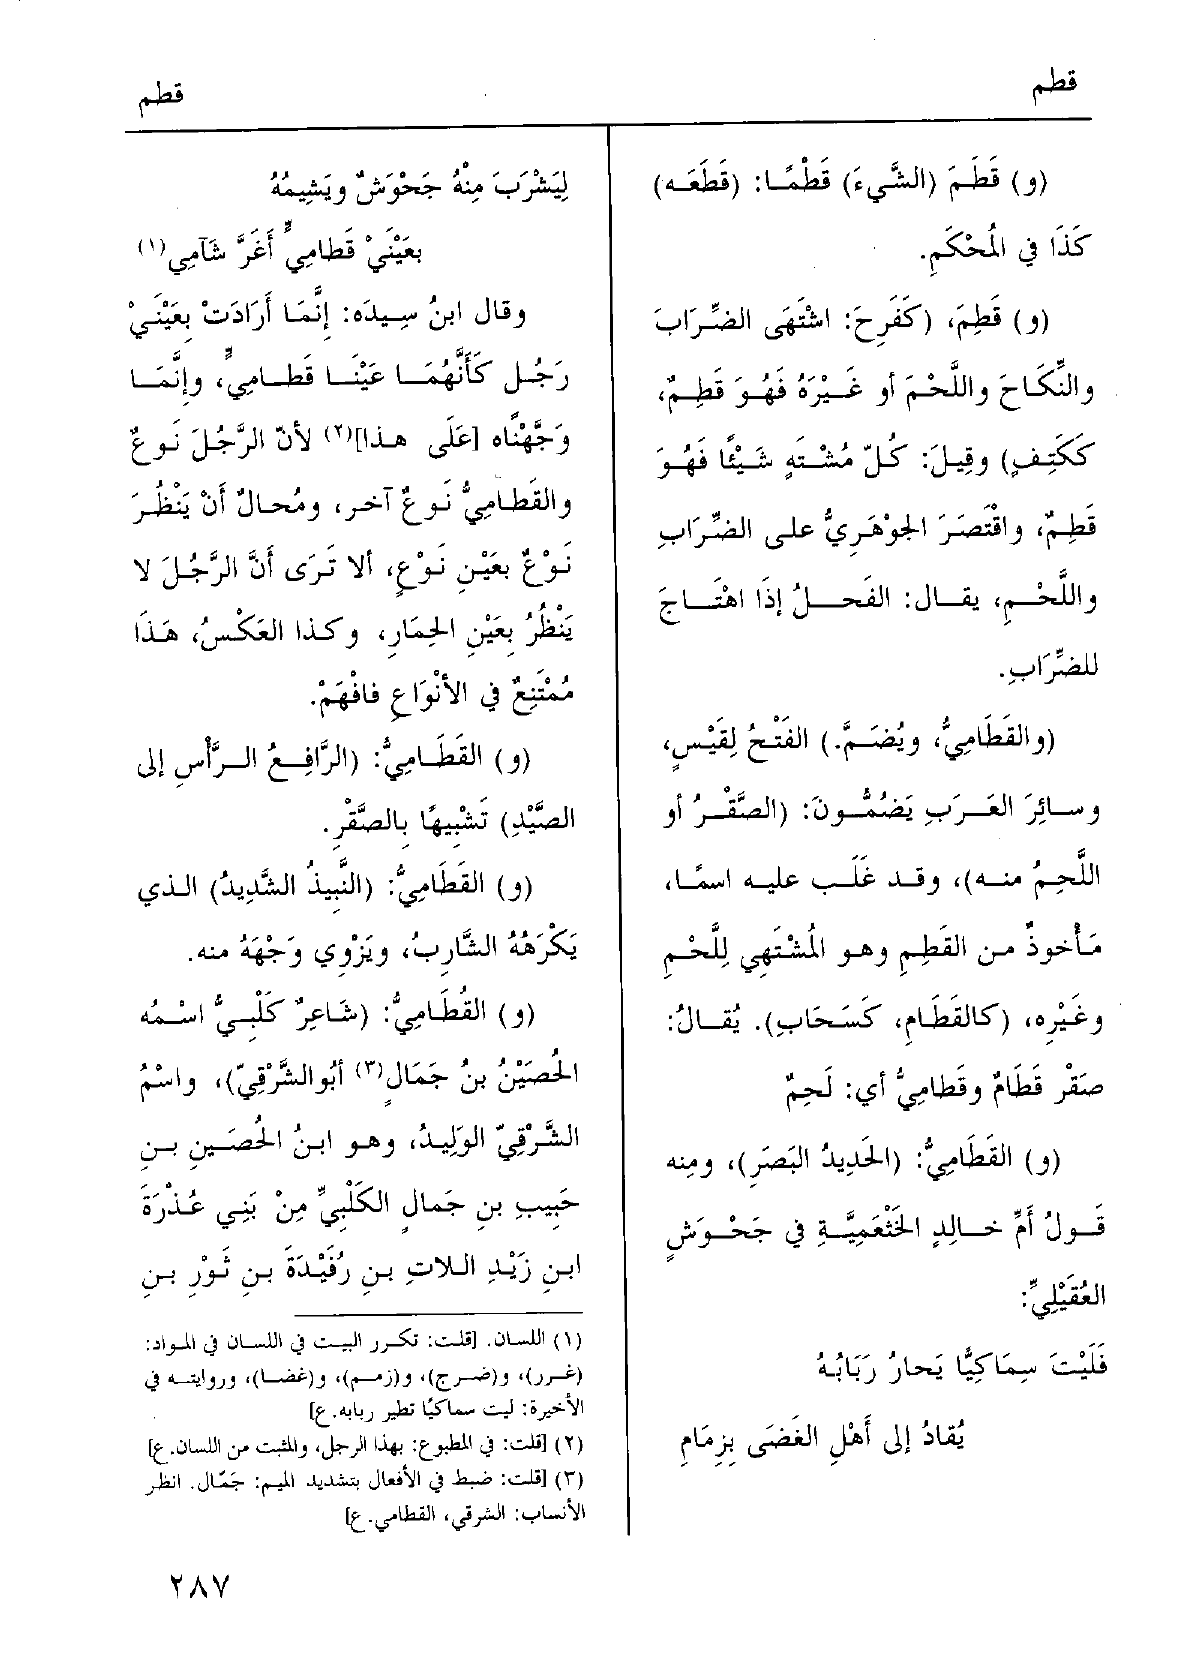 قطم
قطم
(و) قَطَمَ (الشَّيءَ) قَطْمًا: (قَطَعَه)
كَذَا في المُحْكَمِ.
(و) قَطِمَ، (كَفَرِحَ: اشْتَهَى الضِّرَابَ
والنِّكَاحَ واللَّحْمَ أو غَيْرَهُ فَهُوَ قَطِمٌ،
ككَتِفٍ) وقِيلَ: كُلّ مُشْتَهٍ شَيْئًا فَهُوَ
قَطِمٌ، واقْتَصَرَ الجوْهَرِيُّ على الضِّرَابِ
واللَّحْمِ، يقال: الفَحلُ إذَا اهْتَاجَ
للضِّرَابِ.
(والقَطَامِيُّ، ويُضَمّ.) الفَتْحُ لِقَيْسٍ،
وسائِرَ العَرَبِ يَضُمُّونَ: (الصَّقْرُ أو
اللَّحِمُ منه)، وقد غَلَب عليه اسمًا،
مَأخوذٌ من القَطِمِ وهو المُشْتَهِي لِلَّحْمِ
وغَيْرِه، (كالقَطَامِ، كَسَحَابِ). يُقالُ:
صَقْر قَطَامٌ وقَطامِيُّ أي: لَحِمٌ
(و) القَطَامِيُّ: (الحَدِيدُ البَصَرِ)، ومِنه
قَولُ أُمِّ خالِدٍ الخَثْعَمِيَّةِ في جَحْوَشٍ
العُقَيْلِيِّ:
فَلَيْتَ سِمَاكِيًّا يَحارُ رَبَابُهُ
يُقادُ إلى أَهْلِ الغَضَى بِزِمَامِ
لِيَشْرَبَ مِنْهُ جَحْوَشٌ ويَشِيمُهُ
بعَيْنَيْ قَطامِيٍّ أَغَرَّ شَآمِي(١)
وقال ابنُ سِيدَه: إنَّمَا أَرَادَتْ بِعَيْنَيْ
رَجُل كَأَنَّهُمَا عَيْنَا قَطامِيٍّ، وإنَّمَا
وَجَّهْنَاه [عَلَى هذا](٢) لأنّ الرَّجُلَ نَوعٌ
والقَطامِيُّ نَوعٌ آخر، ومُحالٌ أنْ يَنْظُرَ
نَوْعٌ بعَيْنِ نَوْعٍ، ألا تَرَى أنَّ الرَّجُلَ لا
يَنْظُرُ بِعَيْنِ الحِمَارِ، وكذا العَكْسُ، هَذَا
مُمْتَنِعٌ في الأنْوَاعِ فافْهَمْ.
(و) القَطَامِيُّ: (الرَّافِعُ الرَّأْسِ إلى
الصَّيْدِ) تَشْبِيهًا بِالصَّقْرِ.
(و) القَطَامِيُّ: (النَّبِيذُ الشَّدِيدُ) الذي
يَكْرَهُهُ الشَّارِبُ، ويَزْوِي وَجْهَهُ منه.
(و) القُطَامِيُّ: (شَاعِرٌ كَلْبِيٌّ اسْمُه
الحُصَيْنُ بنُ جَمَالٍ(٣) أبُو الشَّرْقِيّ)، واسْمُ
الشَّرْقِيّ الوَلِيدُ، وهو ابنُ الحُصَينِ بنِ
حَبِيبِ بنِ جَمالٍ الكَلْبِيِّ مِنْ بَنِي عُذْرَةَ
ابنِ زَيْدِ اللاتِ بنِ رُفَيْدَةَ بنِ ثَوْر بنِ
(١) اللسان. [قلت: تكرر البيت في اللسان في المواد:
(غرر)، و(ضرج)، و(زمم)، و(غضا)، وروايته في
الأخيرة: ليت سماكيًا تطير ربابه. ع]
(٢) [قلت: في المطبوع: بهذا الرجل، والمثبت من اللسان. ع]
(٣) [قلت: ضبط في الأفعال بتشديد الميم: جَمّال. انظر
الأنساب: الشرقي، القطامي. ع]
٢٨٧